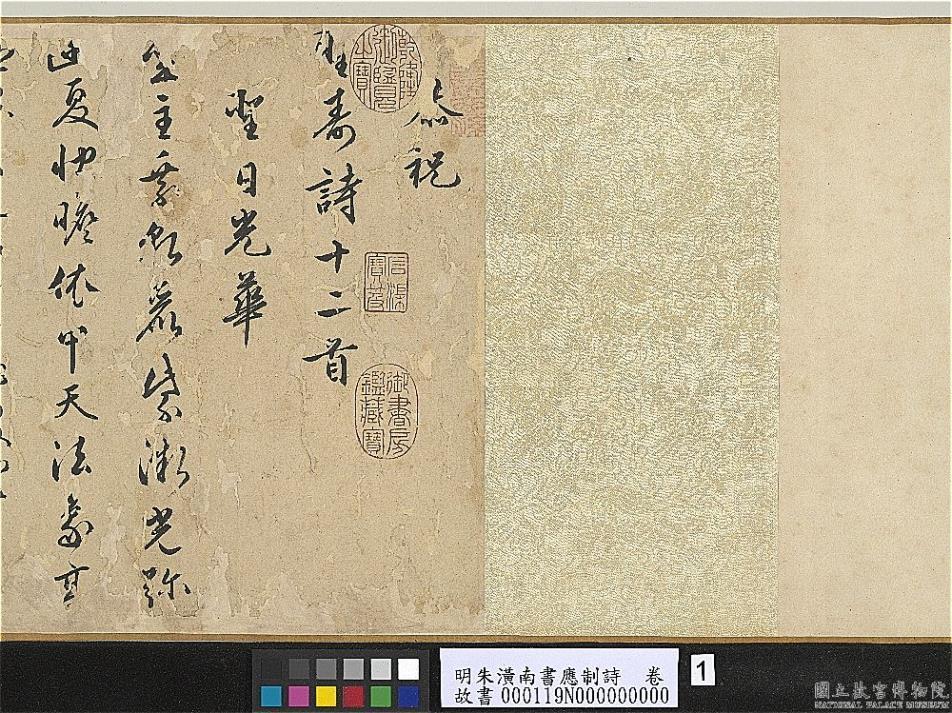 恭祝
聖壽詩十二首
聖日光華
主乘乾麗紫微光弥
夏快瞻依中天法象
乾隆御覽之寶
石渠寶笈
御書房鑑藏寶
明朱潢南書應制詩 卷
故書 000119N000000000
1
國立故宮博物院
NATIONAL PALACE MUSEUM